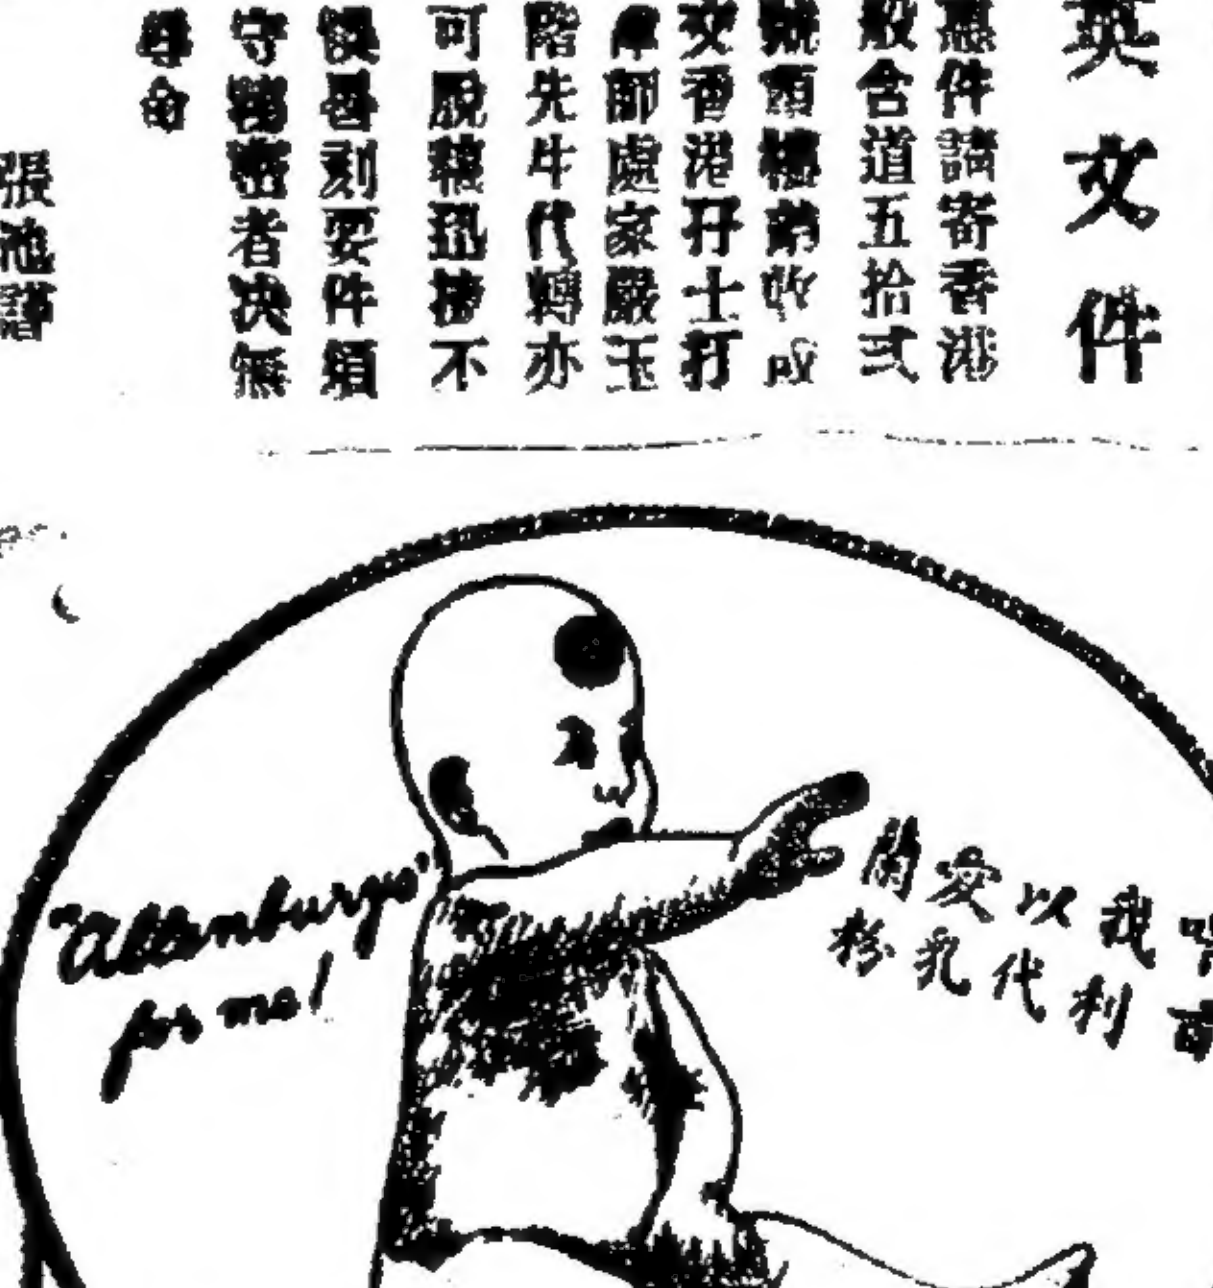 英文件
惠件請寄香港
般含道五拾弍
號頭樓弟收或
交香港孖士打
律師處家嚴玉
階先生代轉亦
可脫稿迅捷不
悞晷刻要件須
守秘密者决無
辱命
張池
"Allenburys"
for me!
我以愛蘭
百利代乳粉